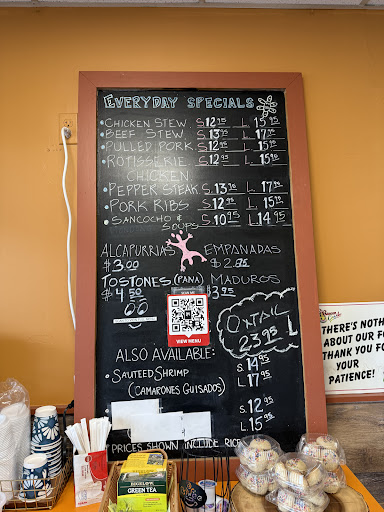 EVERYDAY SPECIALS
• CHICKEN STEW S. 12.95 L 15.95
• BEEF STEW S. 13.95 L 17.95
• PULLED PORK S. 12.95 L. 15.95
• ROTISSERIE S. 12.95 L. 15.90
CHICKEN
• PEPPER STEAK S. 13.10 L. 17.95
• PORK RIBS S. 12.95 L. 15.95
• SANCOCHO & SOUPS S. 10.95 L 14.95
ALCAPURRIAS EMPANADAS
$3.00 $2.75
TOSTONES (PANA) MADUROS
$4.50 3.95
VIEW MENU
OXTAIL
23.95 L
ALSO AVAILABLE:
• SAUTEED SHRIMP S. 14.95
(CAMARONES GUISADOS) L 17.95
S. 12.95
L. 15.95
• PRICES SHOWN INCLUDE RICE
THERE'S NOTH
ABOUT OUR F
THANK YOU F
YOUR
PATIENCE!
BIGELOW
GREEN TEA